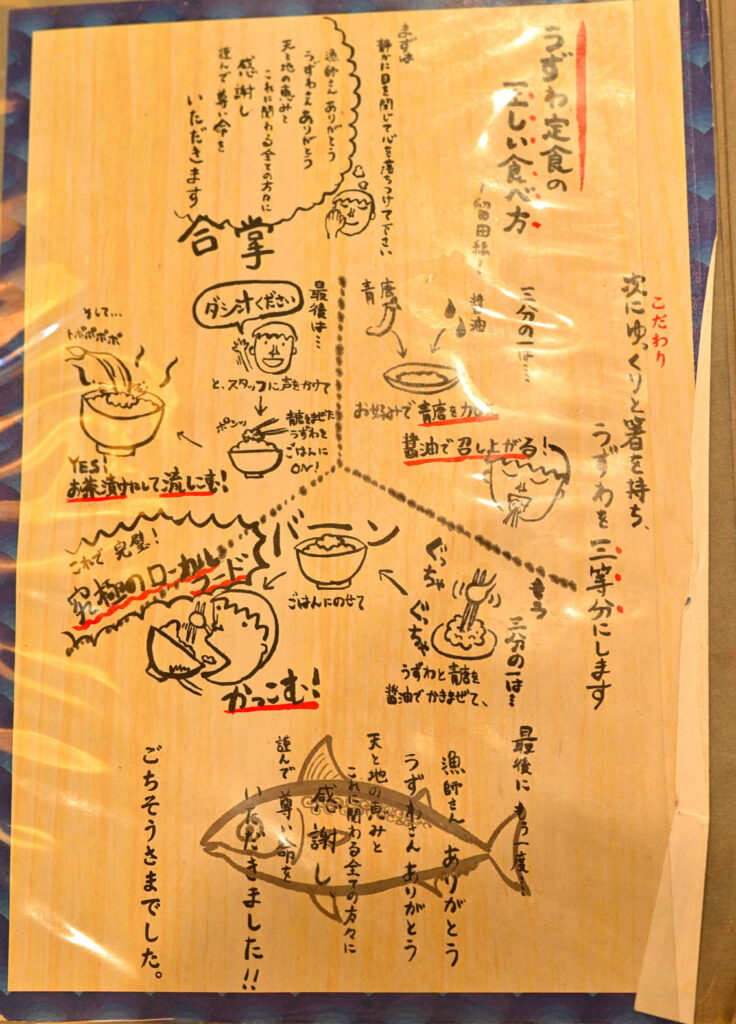 うずわ定食の
正しい食べ方
まずは
静かに目を閉じて心を落ちつけて下さい
漁師さん ありがとう
うずわさん ありがとう
天と地の恵みと
これに関わる全ての方々に
感謝し
謹んで尊い命を
いただきます
合掌
こだわり
次にゆっくりと箸を持ち、
うずわを三等分にします
三分の一は…
醤油
青唐
お好みで青唐をかじり
醤油で召し上がる!
もう
三分の一は…
ぐっちゃ
ぐっちゃ
うずわと青唐を
醤油でかきまぜて、
バーン
ごはんにのせて
かっこむ!
これで完璧!
究極のローカル
フード
最後は…
ダシ汁ください
と、スタッフに声をかけて
青唐をまぜた
うずわを
ごはんに
ON!
ポンッ
そして…
トポポポポ
YES!
お茶漬けにして流しこむ!
最後にもう一度…
漁師さん ありがとう
うずわさん ありがとう
天と地の恵みと
これに関わる全ての方々に
感謝し、
謹んで尊い命を
いただきました!!
ごちそうさまでした。